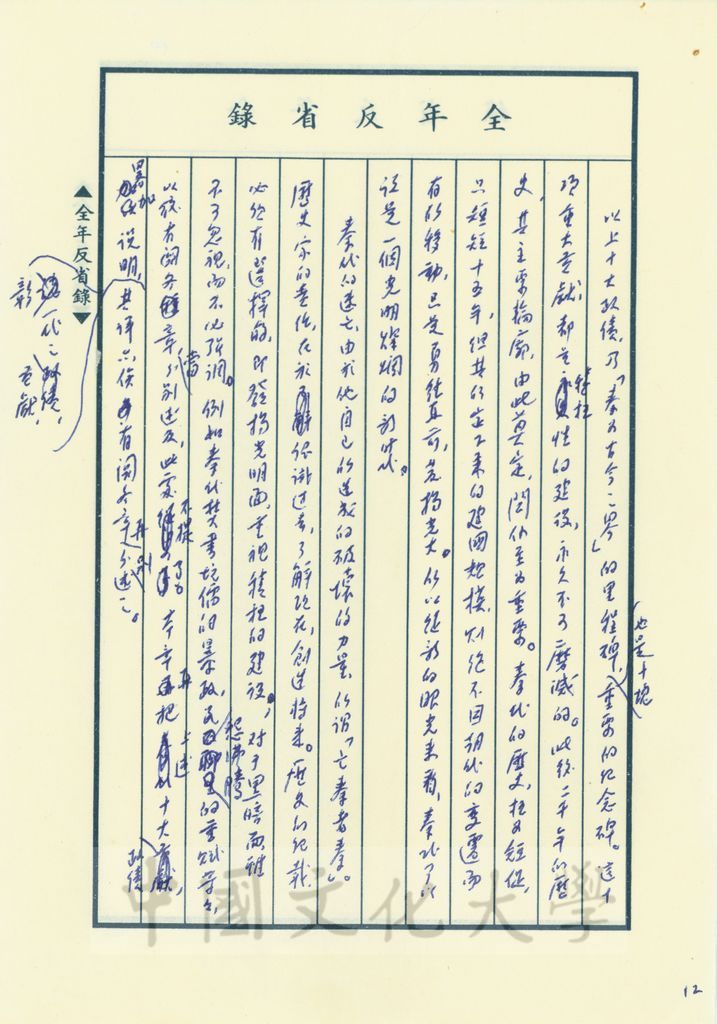 全年反省錄
以上十大政績，乃「秦為古今一界」的里程碑，也是十塊重要的紀念碑。這十
項重大貢獻，都是特在性的建設，永久不可磨滅的。此後二千年的歷
史，其主要輪廓，由此奠定，關係至為重要。秦代的歷史，極為短促，
只短短十五年，但其所定下來的建國規模，則絕不因朝代的變遷而
有所移動，已是勇往直前，發揚光大。所以從新的眼光來看，秦代可以
說是一個光明燦爛的新時代。
秦代的速亡，由於他自己所造成的破壞的力量，所謂「亡秦者秦」。
歷史家的責任，在於認識過去，了解現在，創造將來。歷史的記載，
必須有選擇的，即發揚光明面，重視積極的建設，對于黑暗面雖
不可忽視，而不必強調。例如秦代焚書坑儒的暴政，民怨沸騰的重賦等等，
以後有關各章當分別述及，此處不擬 本章再把上述十大政績，
畧加說明，其詳只俟有關各章再分別述之。
彰 一代之 貢獻，
▲全年反省錄▼
中國文化大學
12